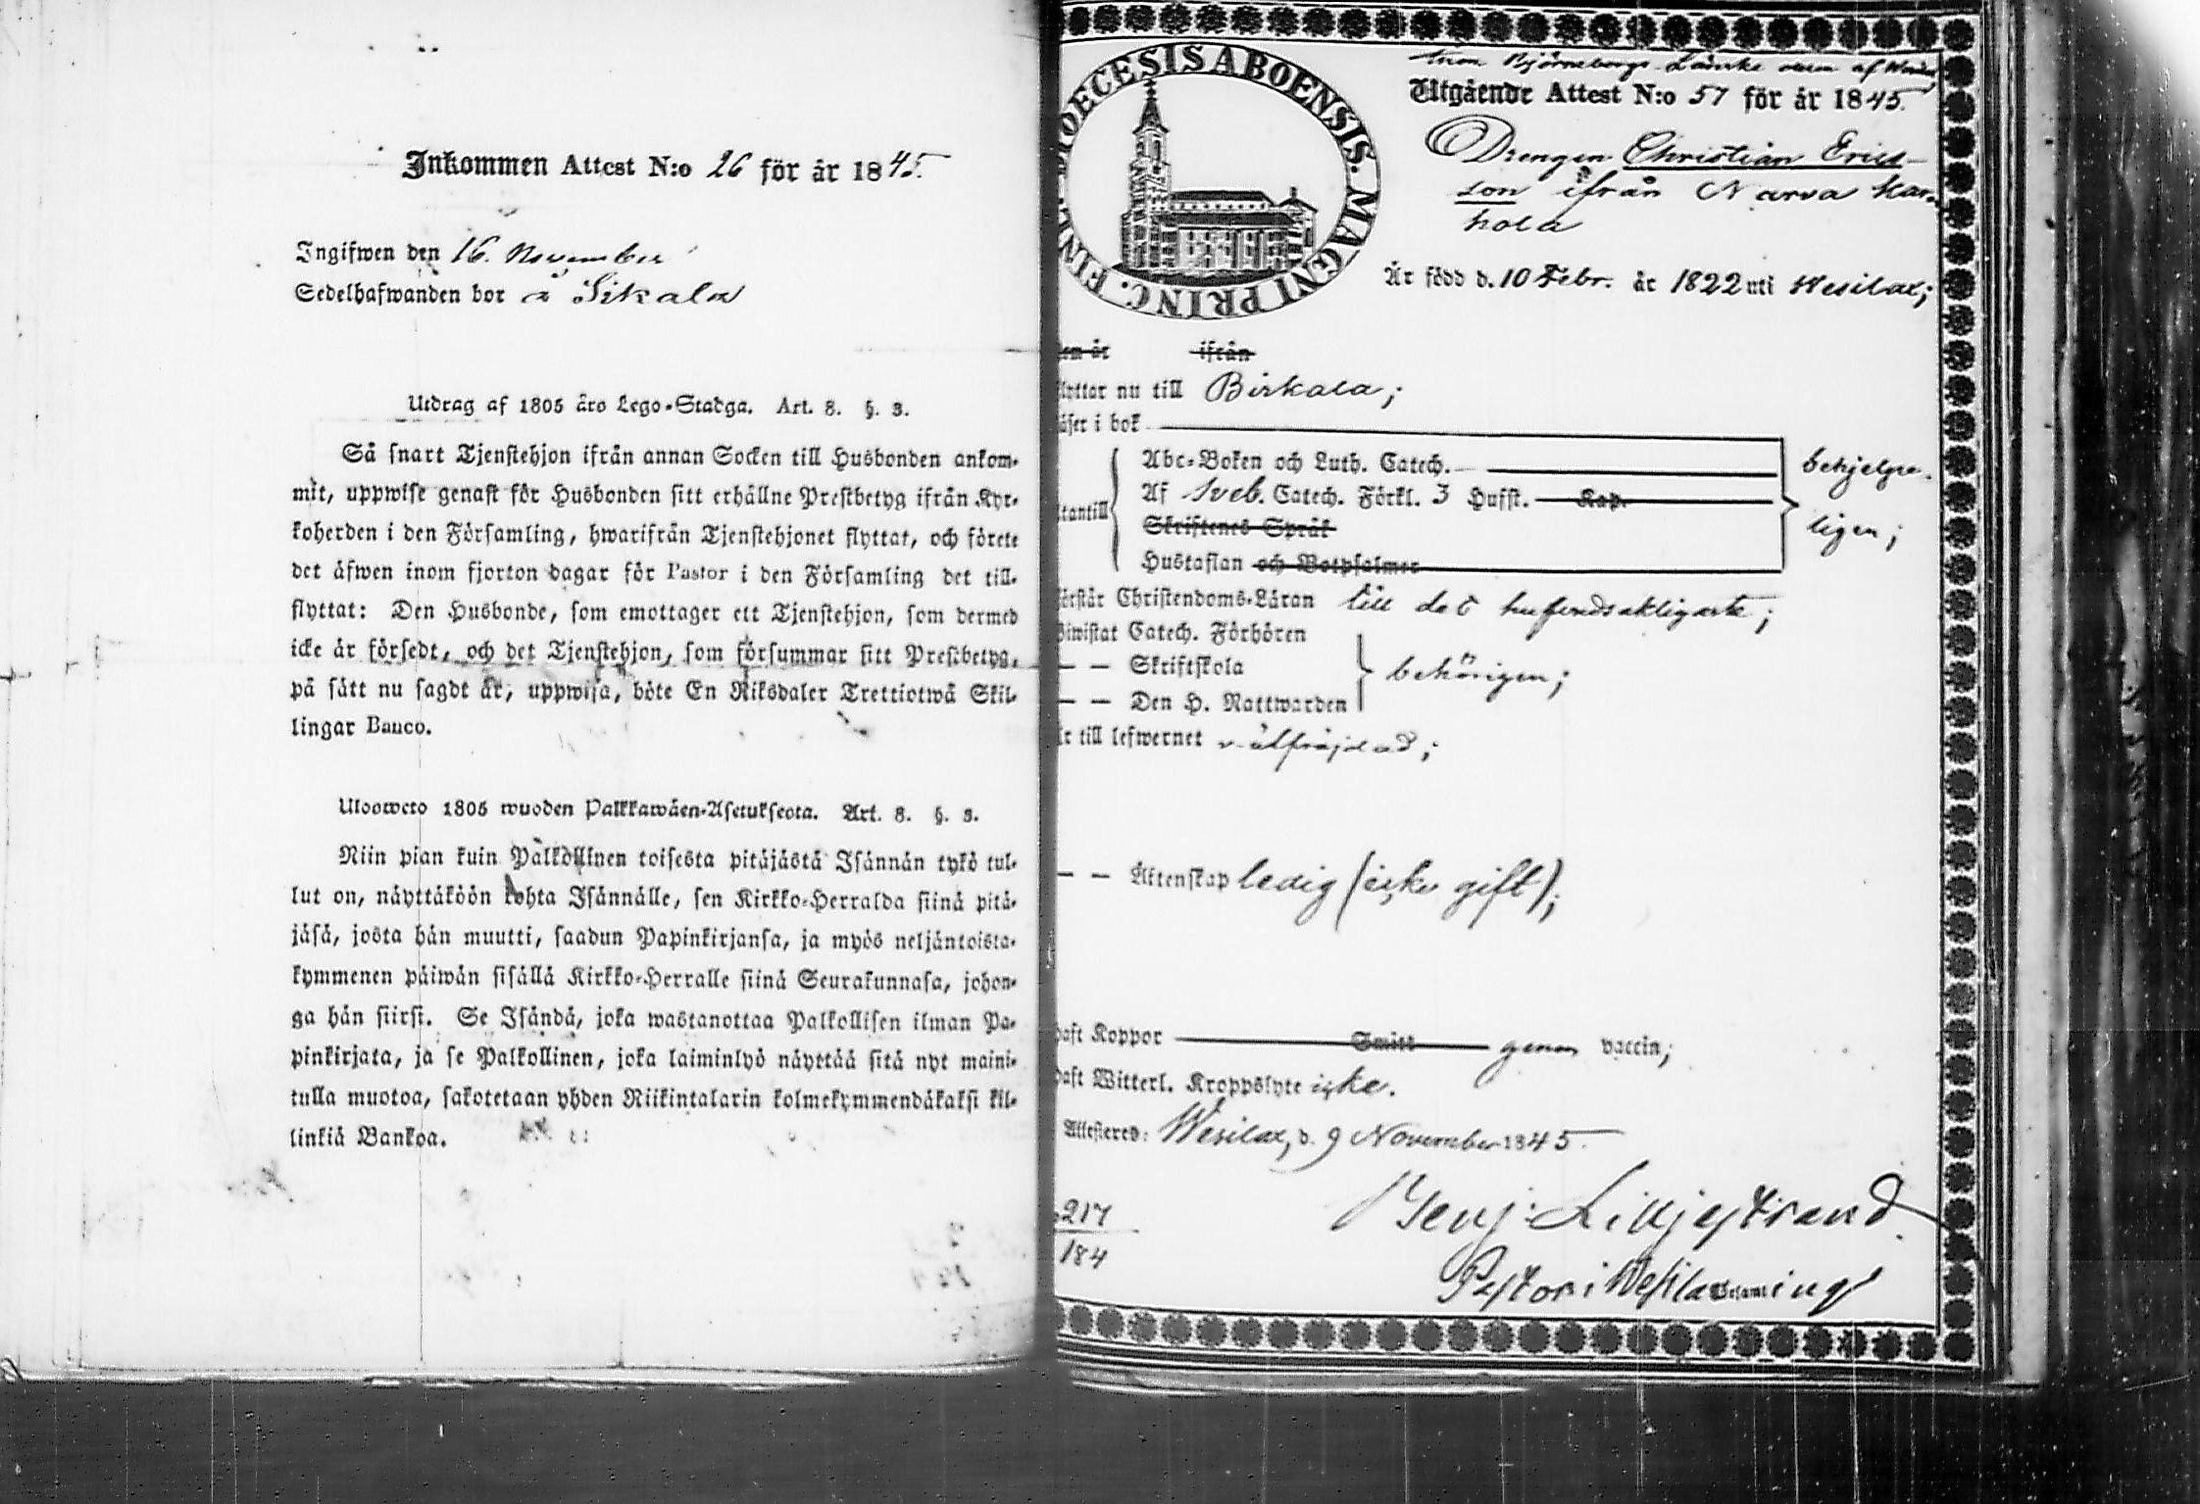 Inkommen Attest N:o 26 för år 1845.
Ingifwen den 16. November
Sedelhafwanden bor å Sikala
Utdrag af 1805 års Lego-Stadga. Art. 8. §. 3.
Så snart Tjenstehjon ifrån annan Socken till Husbonden ankom-
mit, uppwise genast för Husbonden sitt erhållne Prestbetyg ifrån Kyr-
koherden i den Församling, hwarifrån Tjenstehjonet flyttat, och förete
det äfwen inom fjorton dagar för Pastor i den Församling det till-
flyttat: Den Husbonde, som emottager ett Tjenstehjon, som dermed
icke är försedt, och det Tjenstehjon, som försummar sitt Prestbetyg,
på sätt nu sagdt är, uppwisa, böte En Riksdaler Trettiotwå Skil-
lingar Banco.
Ulosweto 1805 wuoden Palkkawäen-Asetuksesta. Art. 8. §. 3.
Niin pian kuin Palkollinen toisesta pitäjästä Isännän tykö tul-
lut on, näyttäköön kohta Isännälle, sen Kirkko-Herralda siinä pitä-
jäsä, josta hän muutti, saadun Papinkirjansa, ja myös neljäntoista-
kymmenen päiwän sisällä Kirkko-Herralle siinä Seurakunnasa, johon-
ga hän siirsi. Se Isändä, joka wastanottaa Palkollisen ilman Pa-
pinkirjata, ja se Palkollinen, joka laiminlyö näyttää sitä nyt maini-
tulla muotoa, sakotetaan yhden Riikintalarin kolmekymmendäkaksi kil-
linkiä Bankoa.
DIOECESIS ABOENSIS. MAGNI PRINC. FINL.
Björneborgs Län
Utgående Attest N:o 57 för år 1845.
Drengen Christian Erics-
son ifrån Narva Kar-
hola
Är född d. 10 Febr. år 1822 uti Wesilax;
den år ifrån
flyttar nu till Birkala;
läser i bok
Abc-Boken och Luth. Catech. behjelpe-
utantill Af Sveb. Catech. Förkl. 3 Hufst. Kap.
Skriftenes Språk ligen;
Hustaflan och Botpsalmer
förstår Christendoms-Läran till det hufvudsakligaste;
Biwistat Catech. Förhören
— — Skriftskola behörigen;
— — Den H. Nattwarden
är till lefwernet välfräjdad;
— — Äktenskap ledig (icke gift);
haft Koppor Smitt genom vaccin;
haft Witterl. Kroppslyte icke.
Attesteras: Wesilax, d. 9 November 1845.
217
184
Benj. Lilljestrand.
Pastor i Wesilax Församling